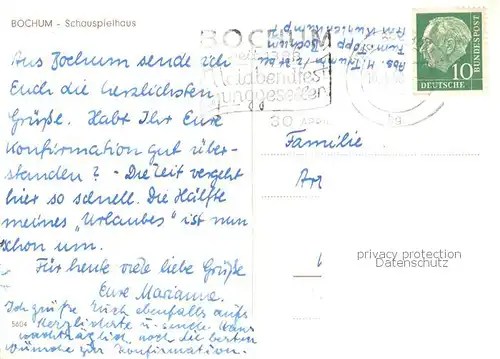 BOCHUM - Schauspielhaus
Aus Bochum sende ich
Euch die herzlichsten
Grüße. Habt Ihr Eure
Konfirmation gut über-
standen? - Die Zeit vergeht
hier so schnell. Die Hälfte
meines "Urlaubes" ist nun
schon um.
Für heute viele liebe Grüße
Eure Marianne.
Ich grüße Euch ebenfalls aufs
Herzlichste u. sende
nachträglich noch die besten
Wünsche zur Konfirmation.
5604
BOCHUM
Maiabendfest
Junggesellen
30. APRIL
Abs. H.
Bochum
DEUTSCHE
BUNDESPOST
10
Familie
privacy protection
Datenschutz